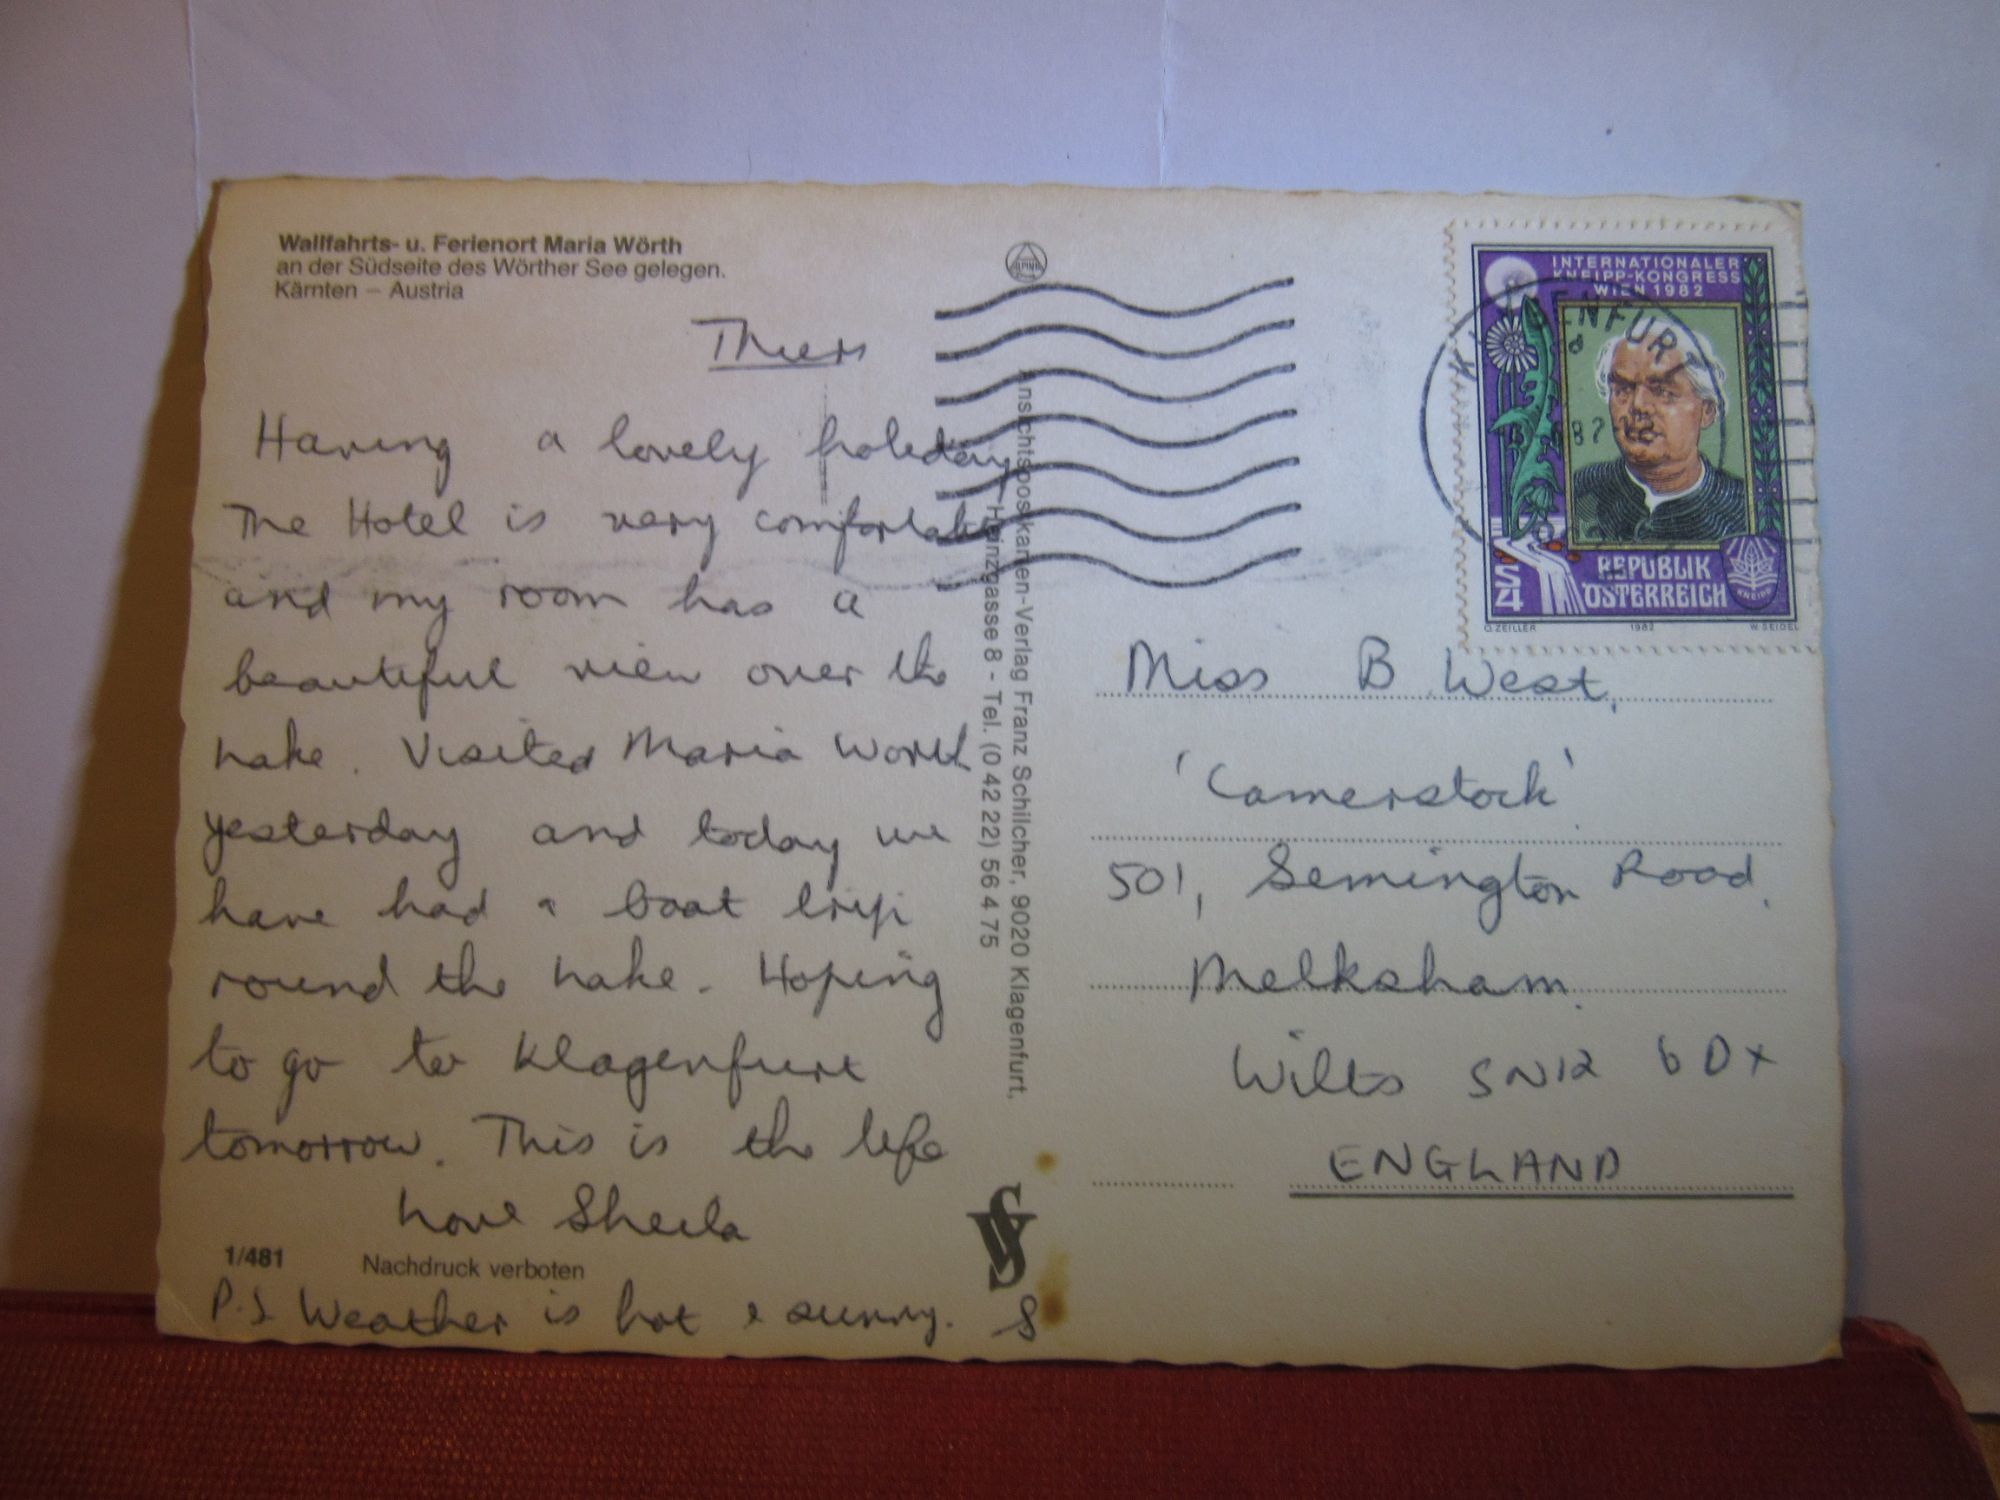 Wallfahrts- u. Ferienort Maria Wörth
an der Südseite des Wörther See gelegen.
Kärnten – Austria
Thurs
Having a lovely holiday
The Hotel is very comfortable
and my room has a
beautiful view over the
Lake. Visited Maria Worth
yesterday and today we
have had a boat trip
round the Lake. Hoping
to go to Klagenfurt
tomorrow. This is the life
Love Sheila
1/481 Nachdruck verboten
P.S Weather is hot & sunny. S
Ansichtspostkarten-Verlag Franz Schilcher, 9020 Klagenfurt,
Heinzgasse 8 - Tel. (0 42 22) 56 4 75
INTERNATIONALER
KNEIPP-KONGRESS
WIEN 1982
S4
REPUBLIK
ÖSTERREICH
KNEIPP
O. ZEILLER 1982 W. SEIDEL
Miss B West,
'Camerstock'
501, Semington Road,
Melksham.
Wilts SN12 6DX
ENGLAND